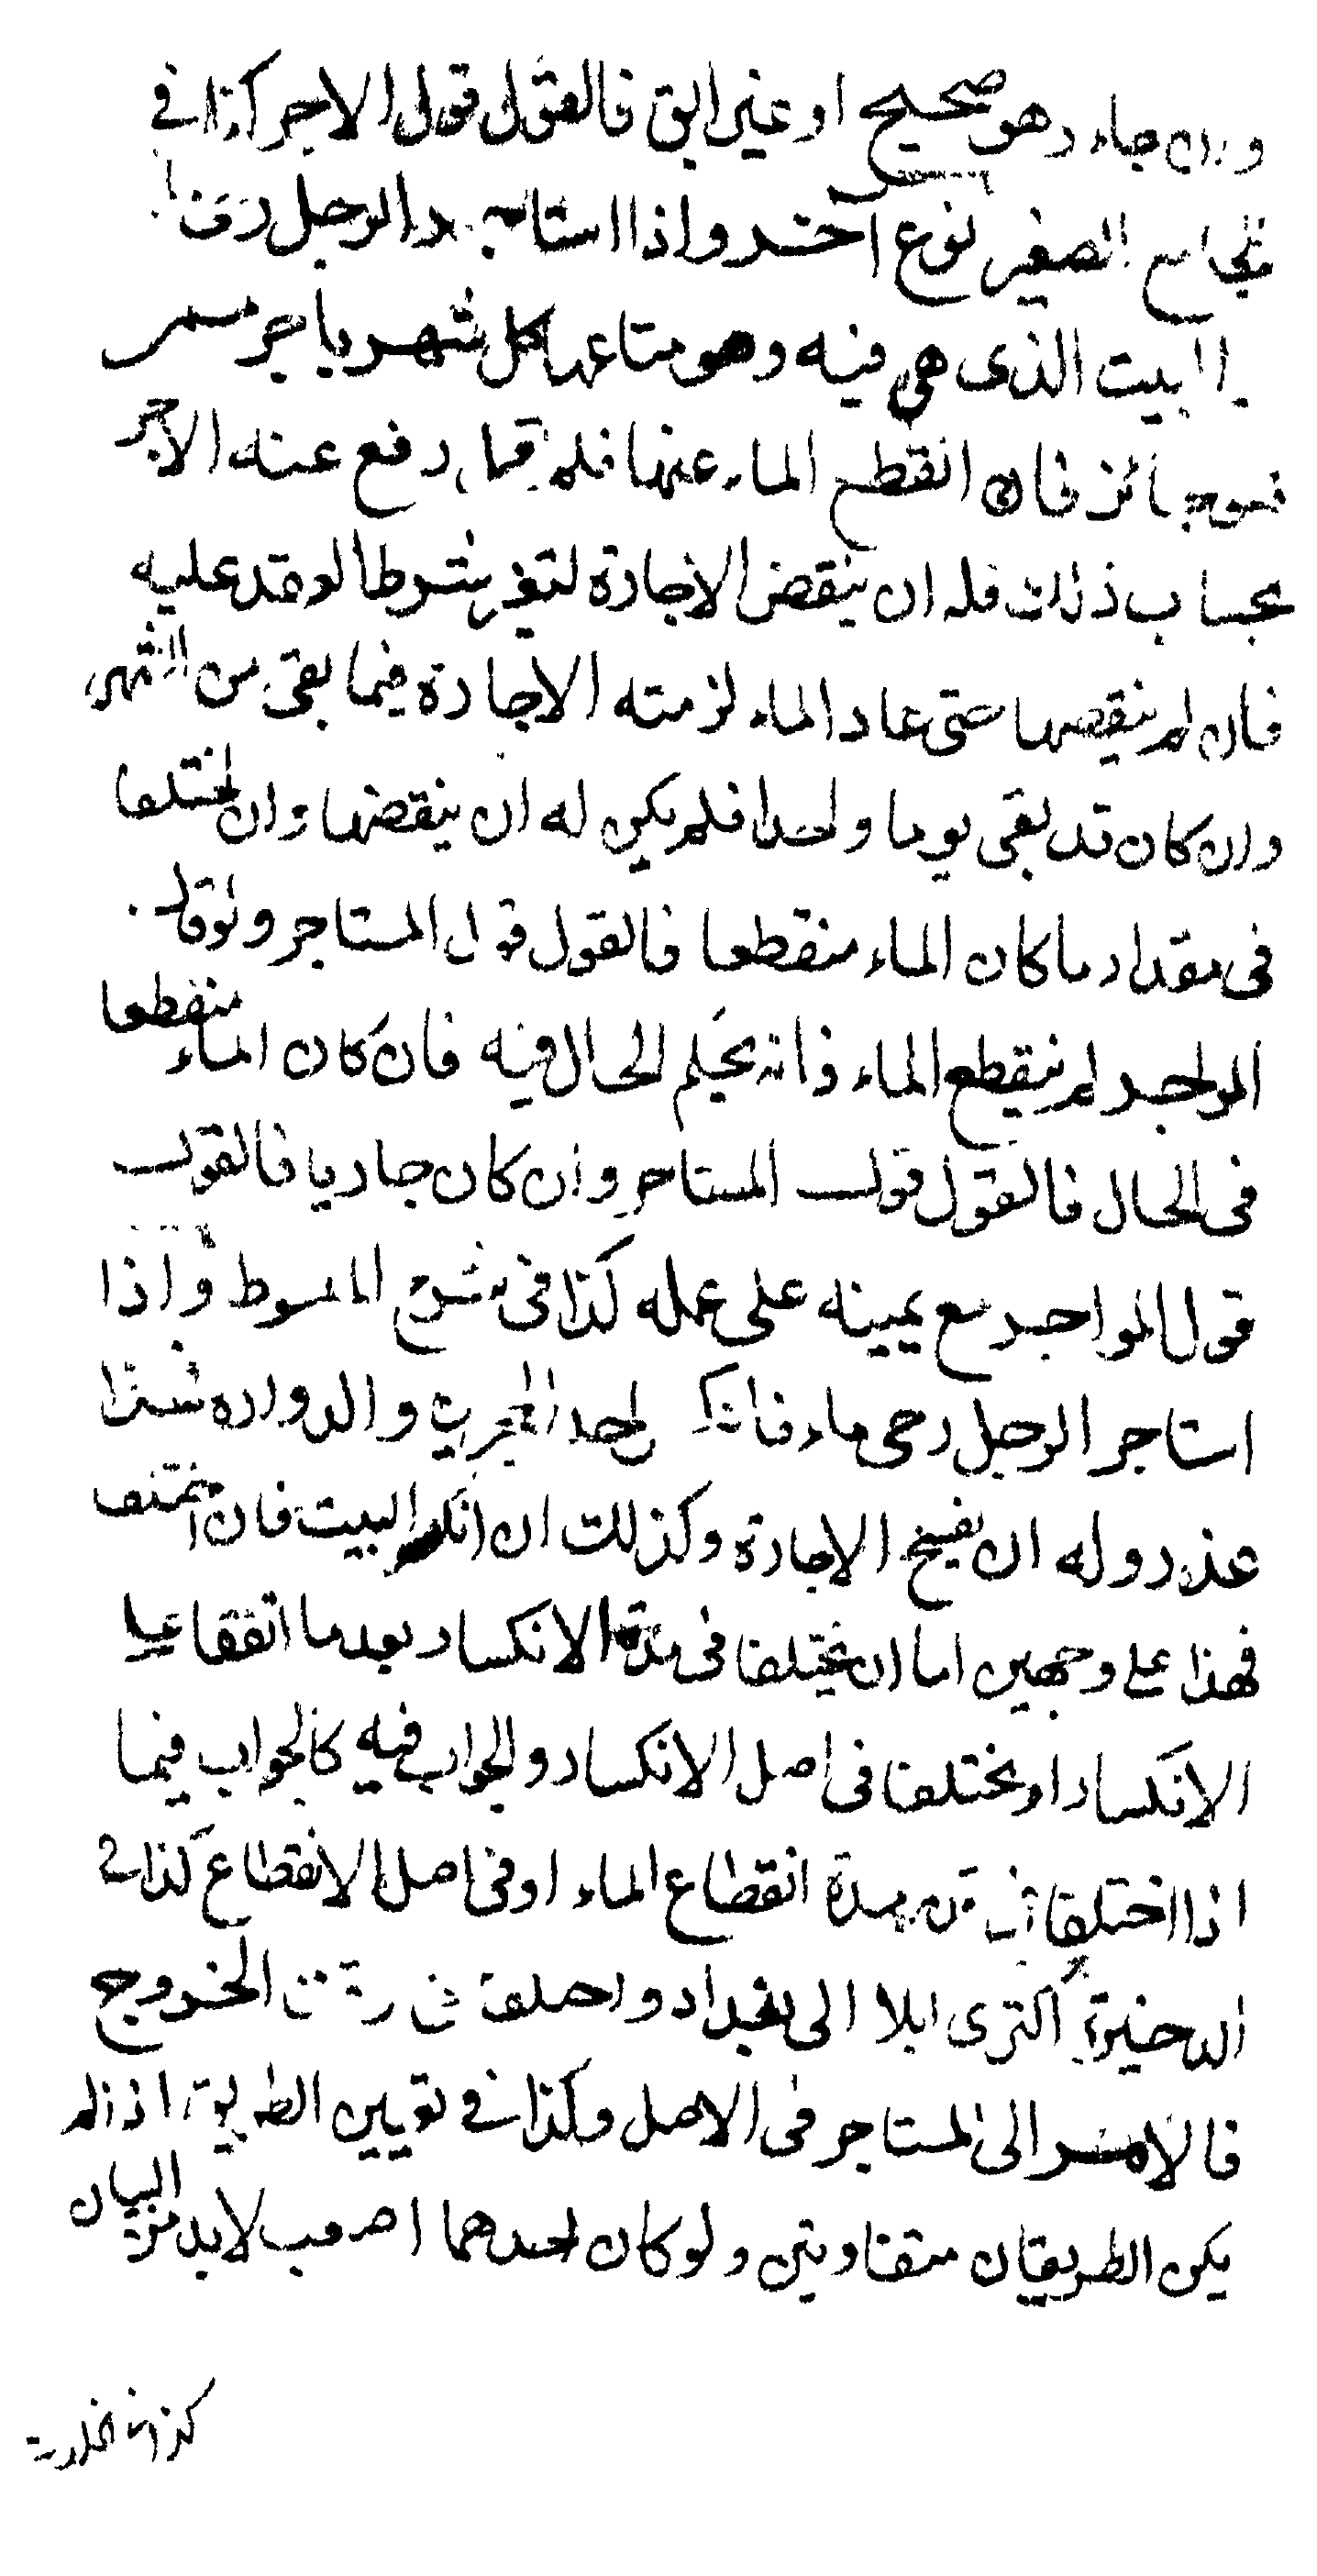 وان جاء وهو صحيح او غير ابق فالقول قول الاجر كذا في
الجامع الصغير نوع اخر واذا استاجر الرجل رحى
البيت الذى هى فيه وهو متاعها كل شهر باجر مسمى
فهو جائز فان انقطع الماء عنها فلم رفع عنه الاجر
بحساب ذلك فله ان ينقض الاجارة لتغير شرط العقد عليه
فان لم ينقضها حتى عاد الماء لزمته الاجارة فيما بقى من الشهر
وان كان قد بقى يوما واحدا فلم يكن له ان ينقضها وان اختلفا
فى مقدار ما كان الماء منقطعا فالقول قول المستاجر ولو قال
المواجر لم ينقطع الماء فانه يحكم الحال فيه فان كان الماء منقطعا
فى الحال فالقول قول المستاجر وان كان جاريا فالقول
قول المواجر مع يمينه على عمله كذا فى شرح المبسوط واذا
استاجر الرجل رحى ماء فانكسر احد الحجرين والدواره فهذا
عذر وله ان يفسخ الاجارة وكذلك ان انكسر البيت فان اختلفا
فهذا على وجهين اما ان يختلفا فى مدة الانكسار بعد ما اتفقا على
الانكسار او يختلفا فى اصل الانكسار والجواب فيه كالجواب فيما
اذا اختلفا فى مدة انقطاع الماء او فى اصل الانقطاع كذا في
الدخيرة اكترى ابلا الى بغداد واختلفا فى وقت الخروج
فالامر الى المستاجر فى الاصل وكذا في تعيين الطريق اذا لم
يكن الطريقان متفاوتين ولو كان احدهما اصعب لابد من البيان